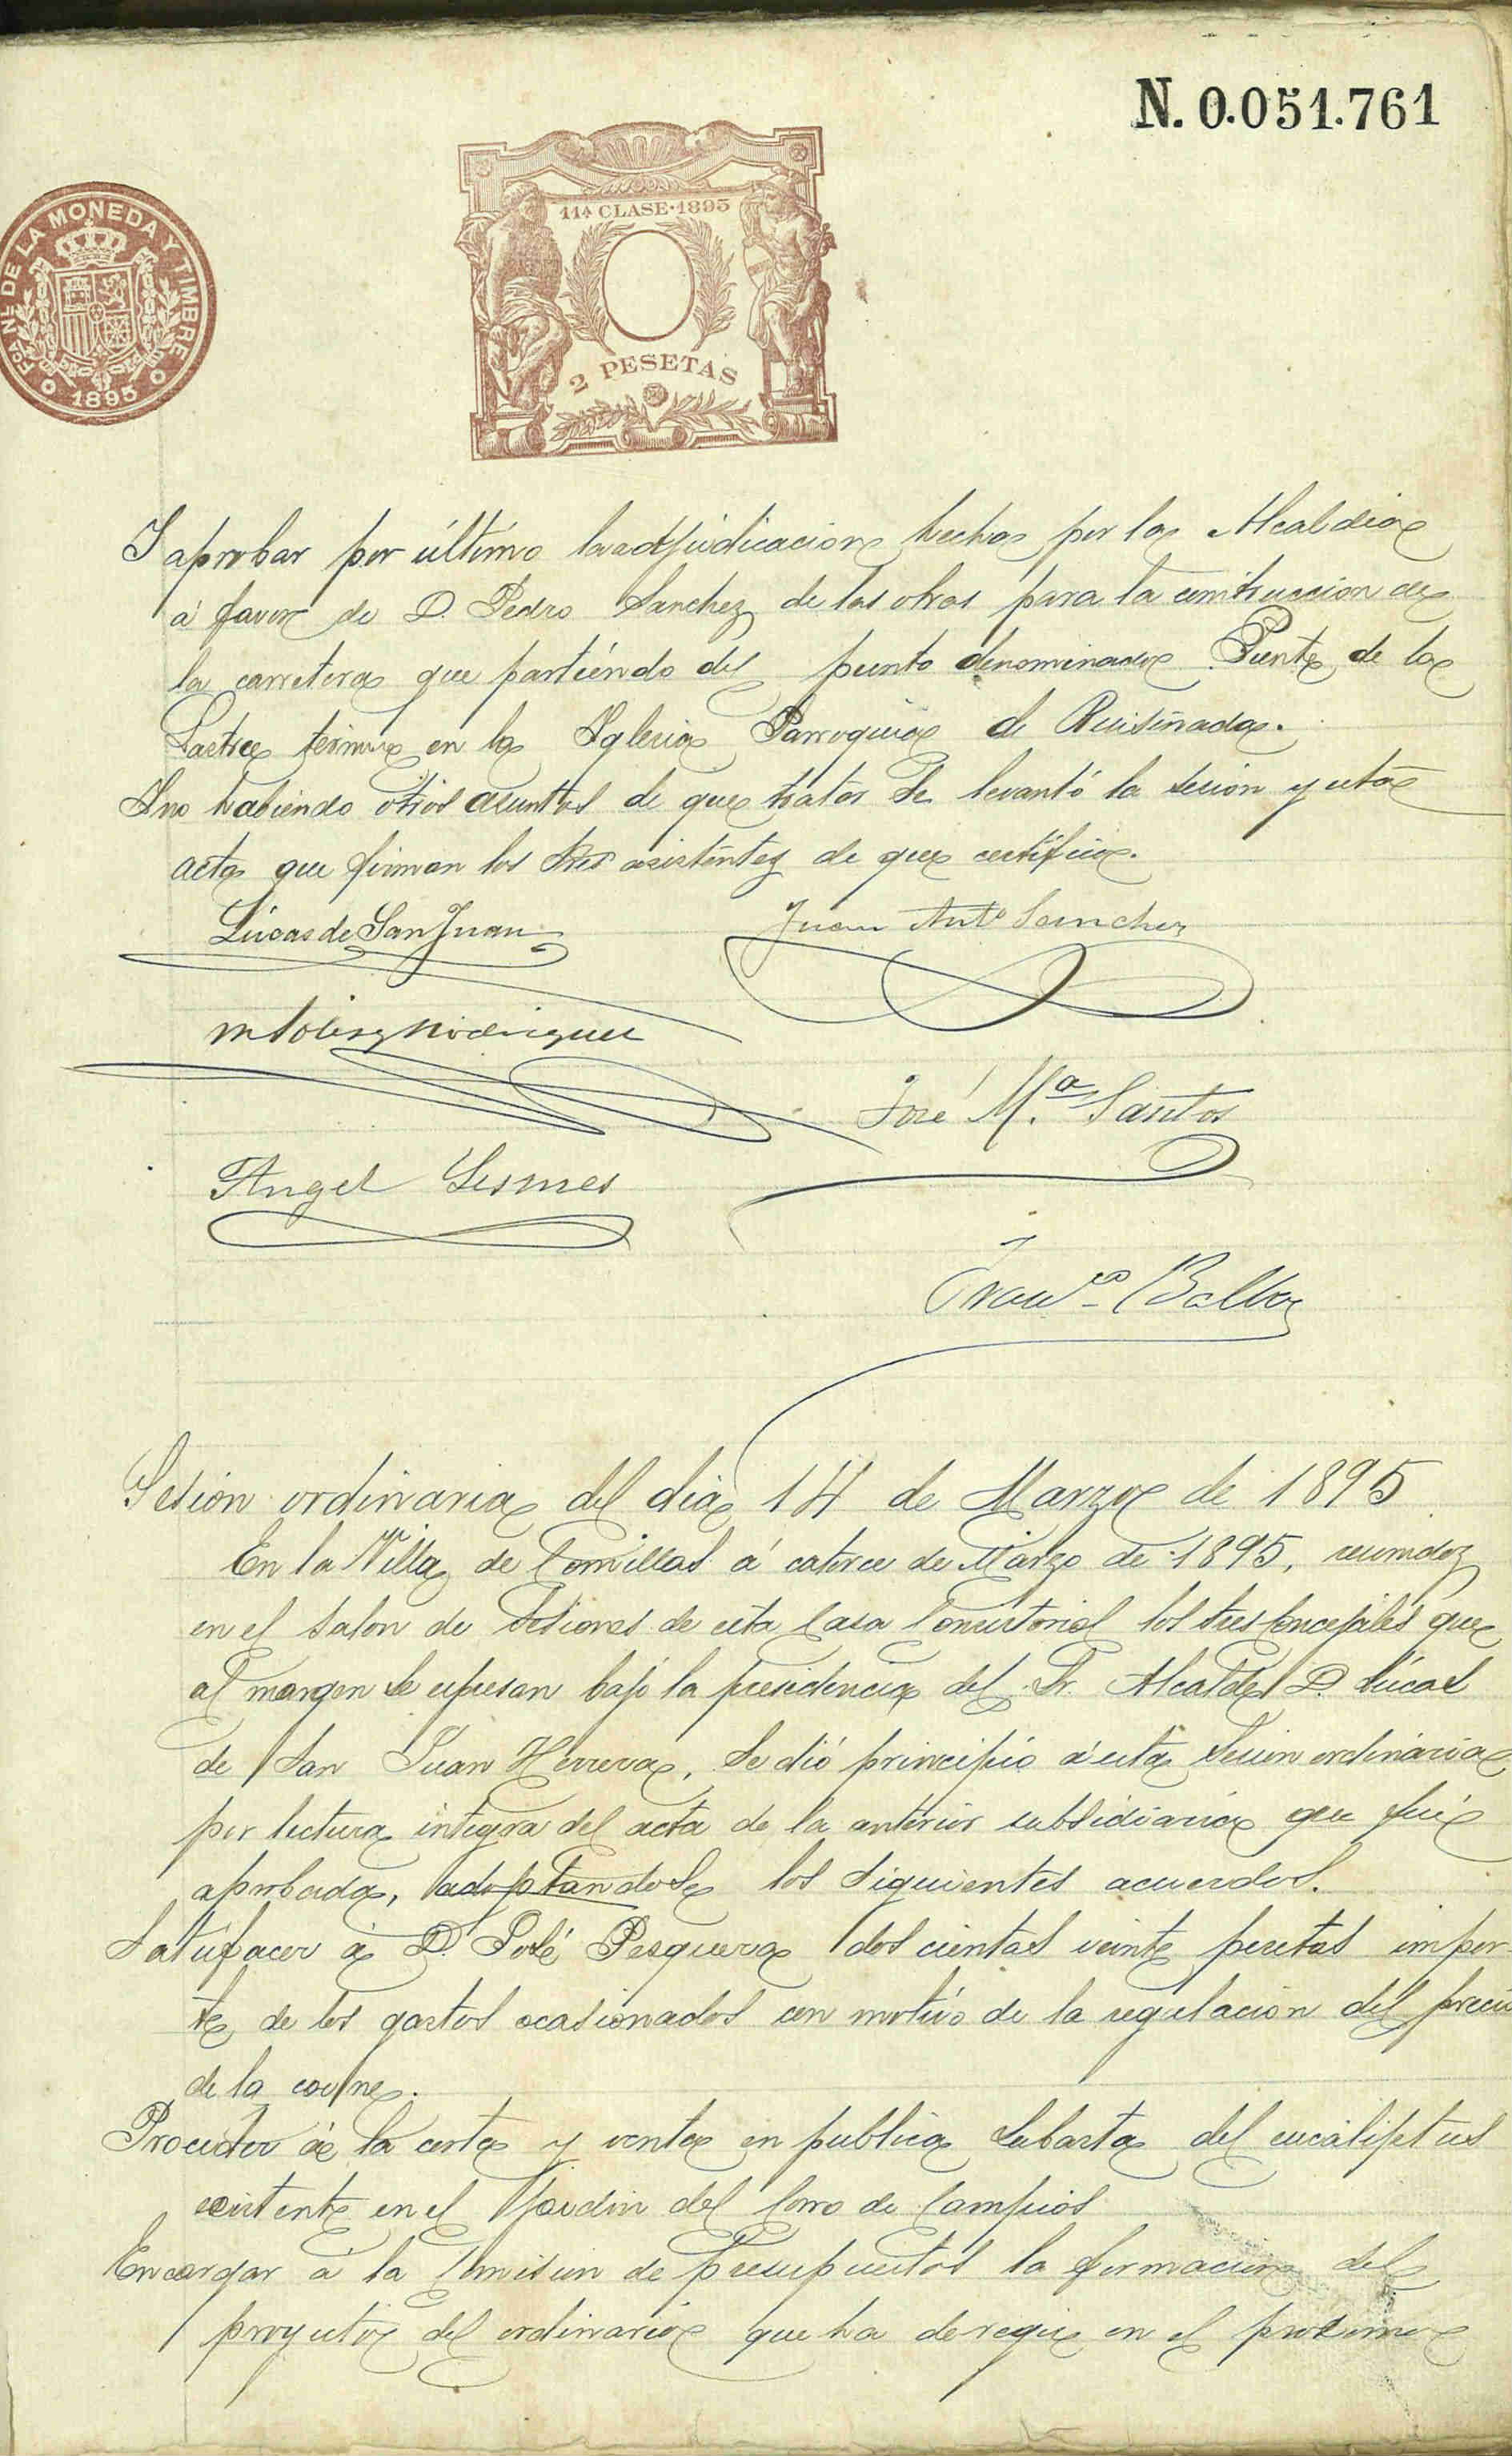 N. 0.051.761
FCA NL DE LA MONEDA Y TIMBRE
1895
11ª CLASE·1895
2 PESETAS
Y aprobar por último la adjudicacion hecha por la Alcaldia
á favor de D. Pedro Sanchez de las obras para la construccion de
la carretera que partiendo del punto denominado Puente de la
termine en la Iglesia Parroquia de Ruiseñada.
Y no habiendo otros asuntos de que tratar Se levantó la sesion y esta
acta que firman los Sres asistentes de que certifico.
Lúcas de San Juan
Juan Antº Sanchez
Rodriguez
José M.ª Santos
Angel Lesmes
Francº
Sesión ordinaria del dia 14 de Marzo de 1895
En la Villa de Comillas á catorce de Marzo de 1895, reunidos
en el Salon de Sesiones de esta Casa Consistorial los Sres Concejales que
al margen se espresan bajo la presidencia del Sr. Alcalde D. Lúcas
de San Juan Herrera, Se dió principio á esta Sesion ordinaria
por lectura integra del acta de la anterior subsidiaria que fué
aprobada, adoptandose los Siguientes acuerdos.
Satisfacer á D. José Pesquera doscientas veinte pesetas impor-
te de los gastos ocasionados con motivo de la regulacion del precio
de la carne.
Proceder á la corta y venta en publica Subasta del eucaliptus
existente en el Jardin del Corro de Campios
Encargar á la Comision de Presupuestos la formacion del
proyecto del ordinario que ha de regir en el proximo